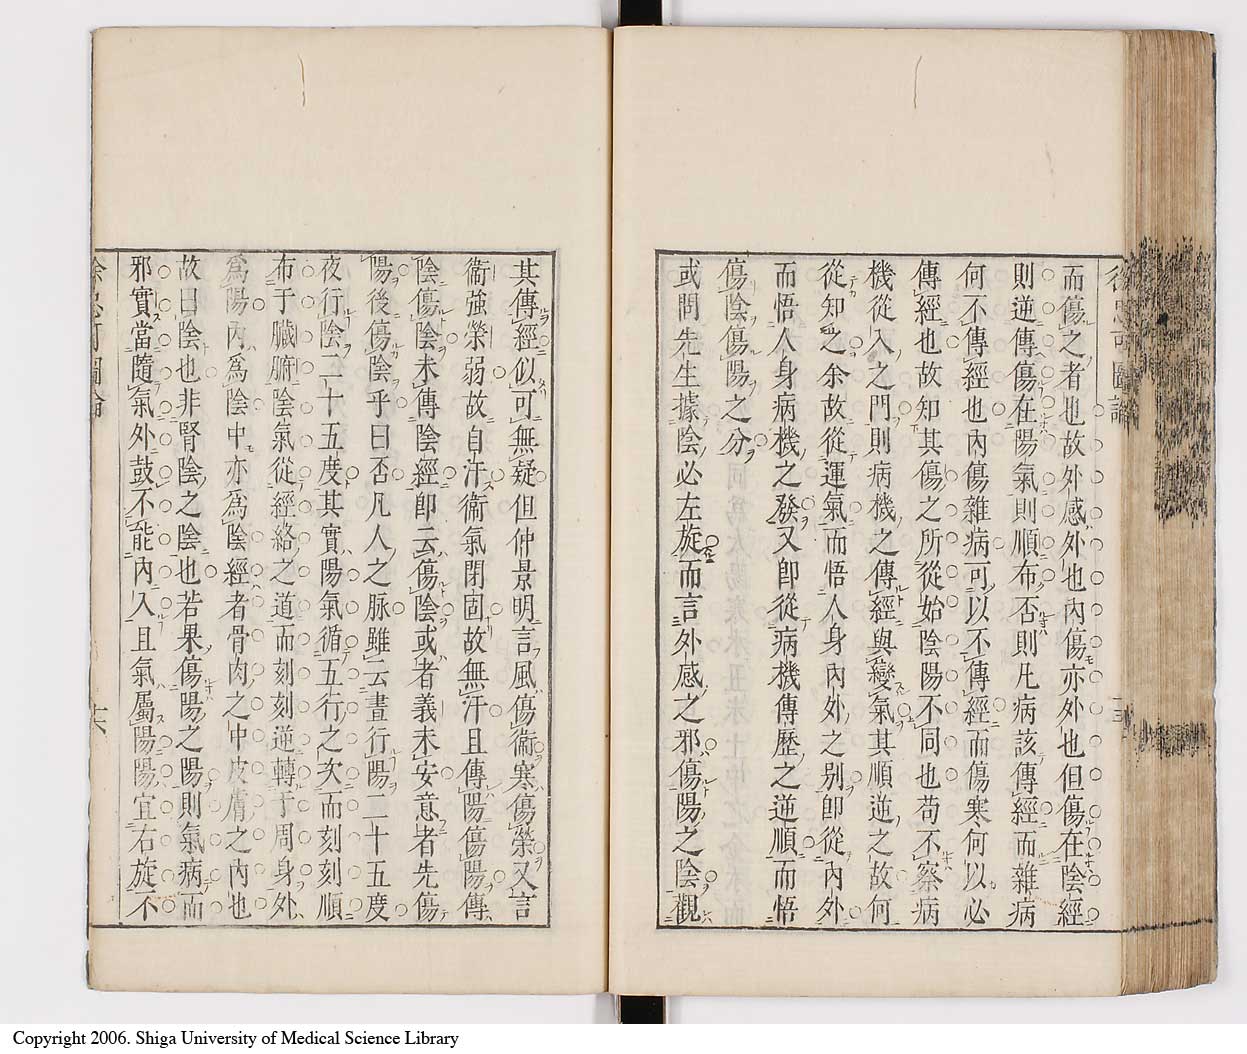 徐忠可圖論
而傷之者也故外感外也內傷亦外也但傷在陰經
則逆傳傷在陽氣則順布否則凡病該傳經而雜病
何不傳經也內傷雜病可以不傳經而傷寒何以必
傳經也故知其傷之所從始陰陽不同也苟不察病
機從入之門則病機之傳經與變氣其順逆之故何
從知之余故從運氣而悟人身內外之別卽從內外
而悟人身病機之發又卽從病機傳歷之逆順而悟
傷陰傷陽之分
或問先生據陰必左旋而言外感之邪傷陽之陰觀
其傳經似可無疑但仲景明言風傷衞寒傷榮又言
衞強榮弱故自汗衞氣閉固故無汗且傳陽傷陽傳
陰傷陰未傳陰經卽云傷陰或者義未安意者先傷
陽後傷陰乎曰否凡人之脉雖云晝行陽二十五度
夜行陰二十五度其實陽氣循五行之次而刻刻順
布于臟腑陰氣從經絡之道而刻刻逆轉于周身外
爲陽內爲陰中亦爲陰經者骨肉之中皮膚之內也
故曰陰也非腎陰之陰也若果傷陽之陽則氣病而
邪實當隨氣外鼓不能內入且氣屬陽陽宜右旋不
徐忠可圖論
Copyright 2006. Shiga University of Medical Science Library